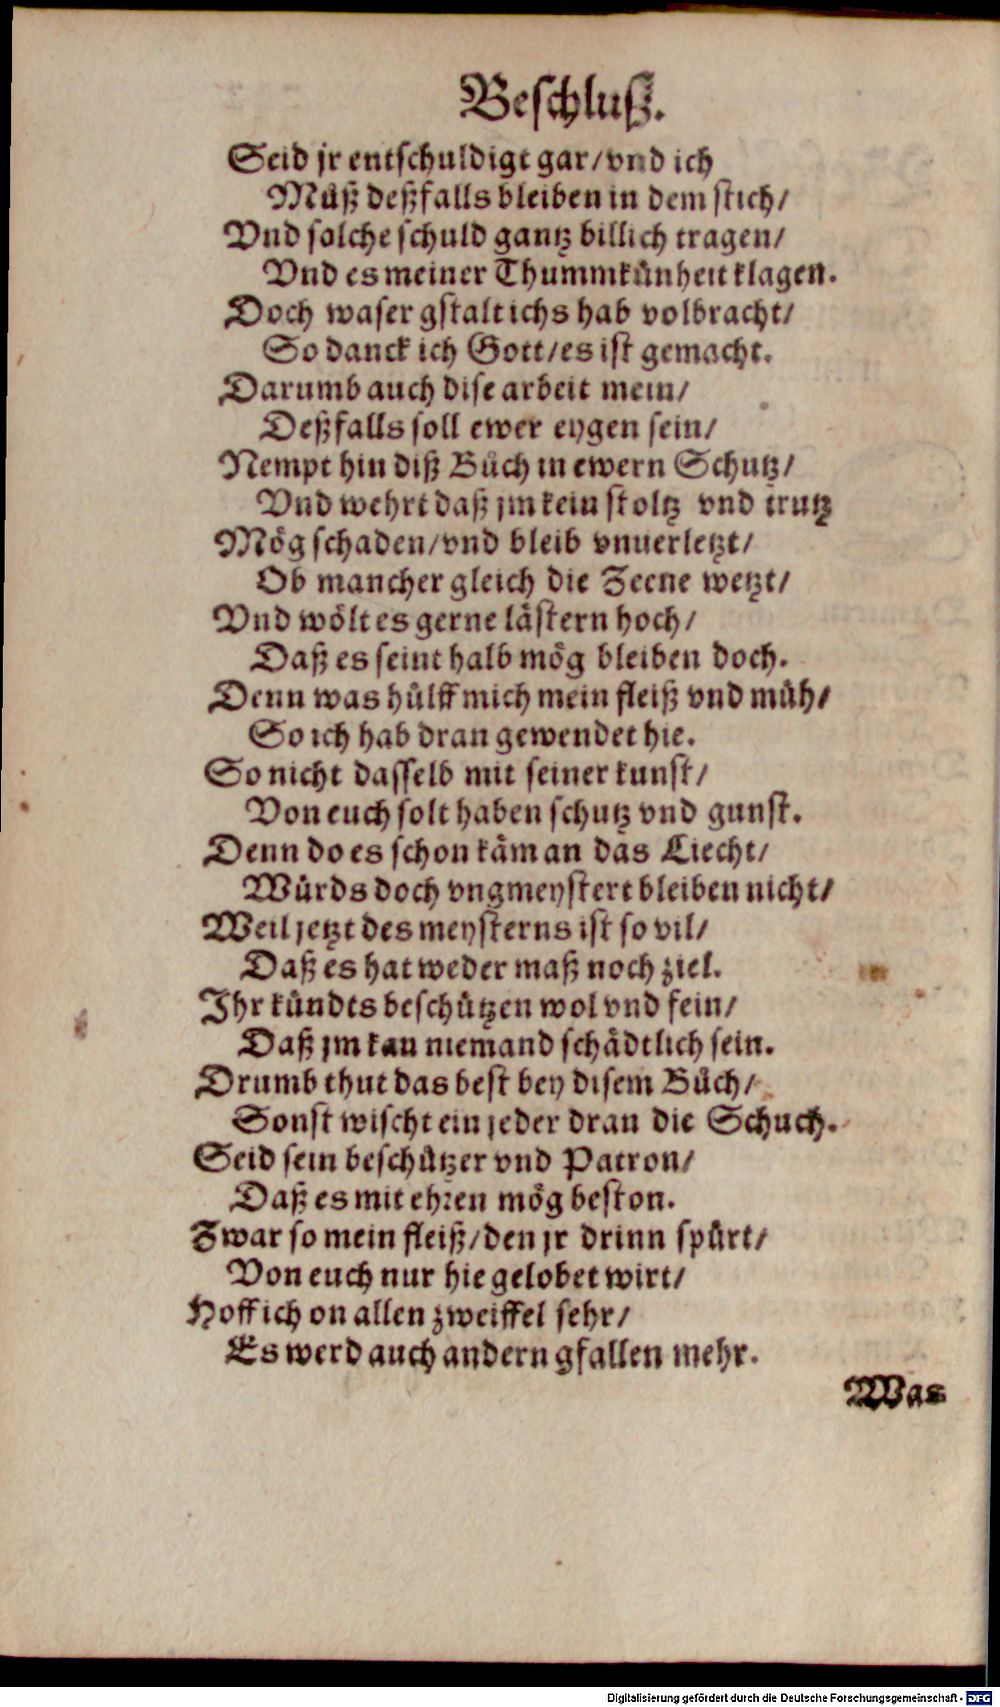 Beschluß.
Seid jr entschuldigt gar/vnd ich
Muͦß deßfalls bleiben in dem stich/
Vnd solche schuld gantz billich tragen/
Vnd es meiner Thummkuͤnheit klagen.
Doch waser gstalt ichs hab volbracht/
So danck ich Gott/es ist gemacht.
Darumb auch dise arbeit mein/
Deßfalls soll ewer eygen sein/
Nempt hin diß Buͦch in ewern Schutz/
Vnd wehrt daß jm kein stoltz vnd trutz
Moͤg schaden/vnd bleib vnuerletzt/
Ob mancher gleich die Zeene wetzt/
Vnd woͤlt es gerne laͤstern hoch/
Daß es seint halb moͤg bleiben doch.
Denn was huͤlff mich mein fleiß vnd muͤh/
So ich hab dran gewendet hie.
So nicht dasselb mit seiner kunst/
Von euch solt haben schutz vnd gunst.
Denn do es schon kaͤm an das Liecht/
Wuͤrds doch vngmeystert bleiben nicht/
Weil jetzt des meysterns ist so vil/
Daß es hat weder maß noch ziel.
Ihr kuͤndts beschuͤtzen wol vnd fein/
Daß jm kan niemand schaͤdtlich sein.
Drumb thut das best bey disem Buͦch/
Sonst wischt ein jeder dran die Schuch.
Seid sein beschuͤtzer vnd Patron/
Daß es mit ehren moͤg beston.
Zwar so mein fleiß/den jr drinn spuͤrt/
Von euch nur hie gelobet wirt/
Hoff ich on allen zweiffel sehr/
Es werd auch andern gfallen mehr.
Was
Digitalisierung gefördert durch die Deutsche Forschungsgemeinschaft - DFG